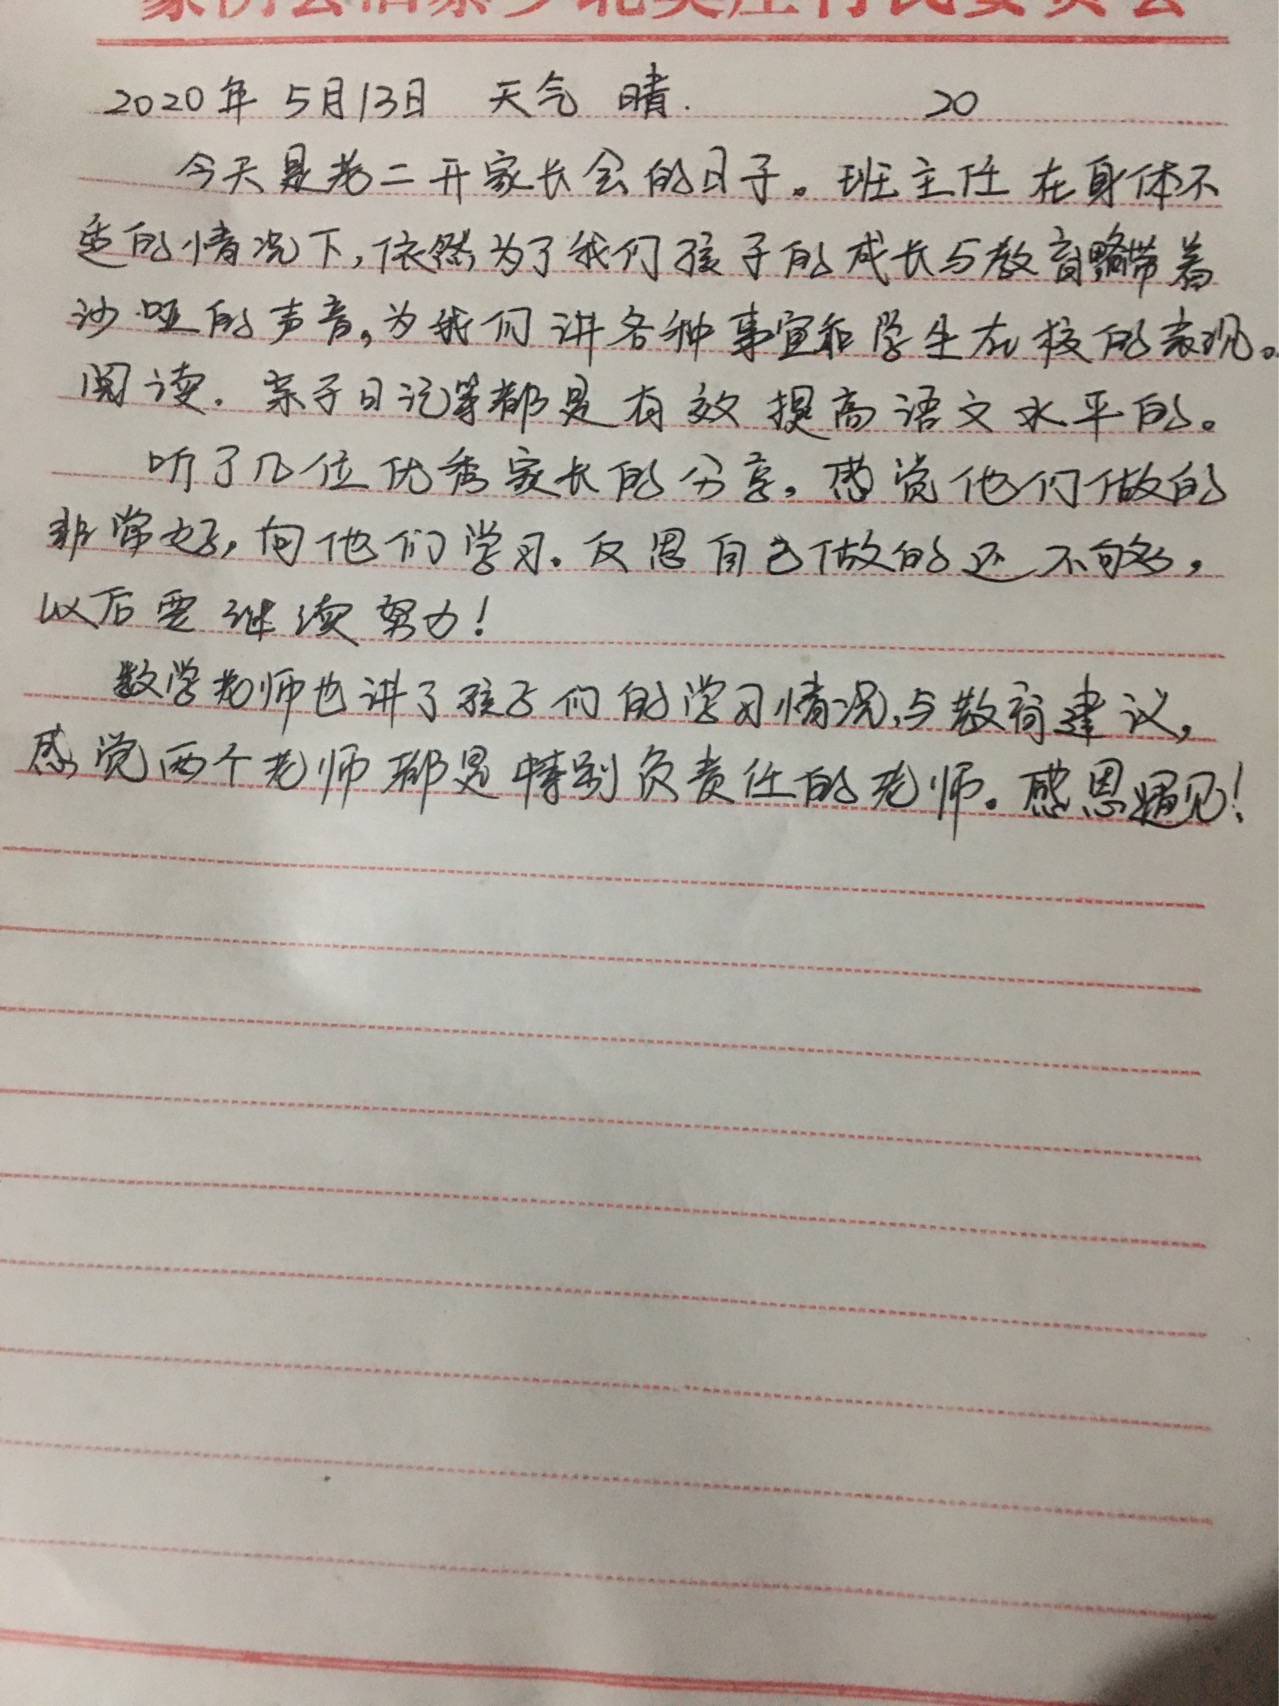 2020年 5月13日 天气 晴. 20
今天是老二开家长会的日子。班主任在身体不
适的情况下,依然为了我们孩子的成长与教育略带着
沙哑的声音,为我们讲各种事宜和学生在校的表现。
阅读.亲子日记等都是有效提高语文水平的。
听了几位优秀家长的分享,感觉他们做的
非常好,向他们学习.反思自己做的还不够,
以后要继续努力!
数学老师也讲了孩子们的学习情况,与教育建议,
感觉两个老师都是特别负责任的老师。感恩遇见!